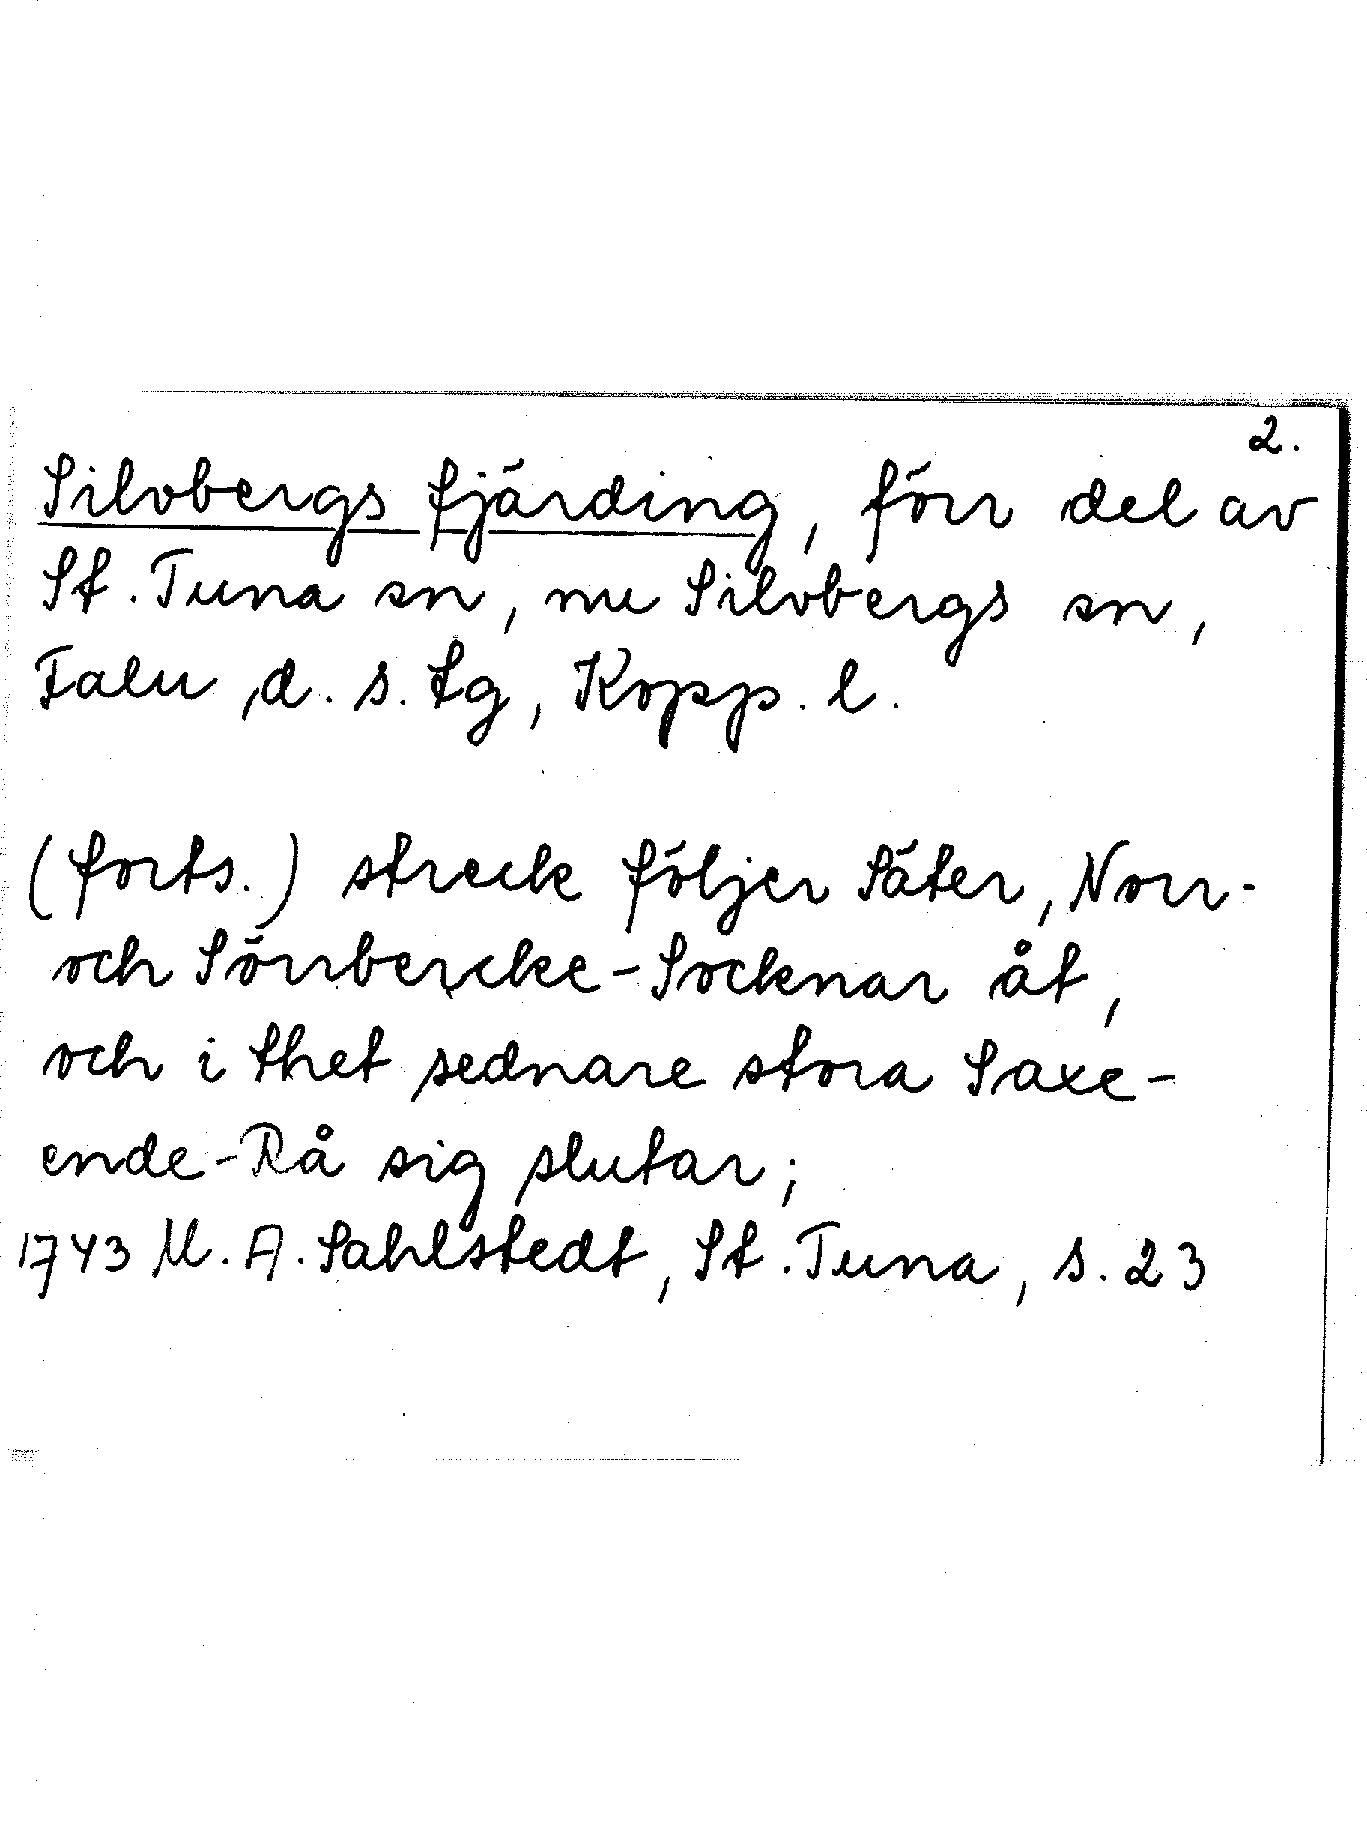 2.
Silvbergs fjärding, förr del av
St. Tuna sn, nu Silvbergs sn,
Falu d. s. tg, Kopp. l.
(forts.) streck följer Säter, Norr-
och Sörrbercke-Socknar åt,
och i thet sednare stora Saxe-
ende-Rå sig slutar;
1743 M. A. Sahlstedt, St. Tuna, s. 23